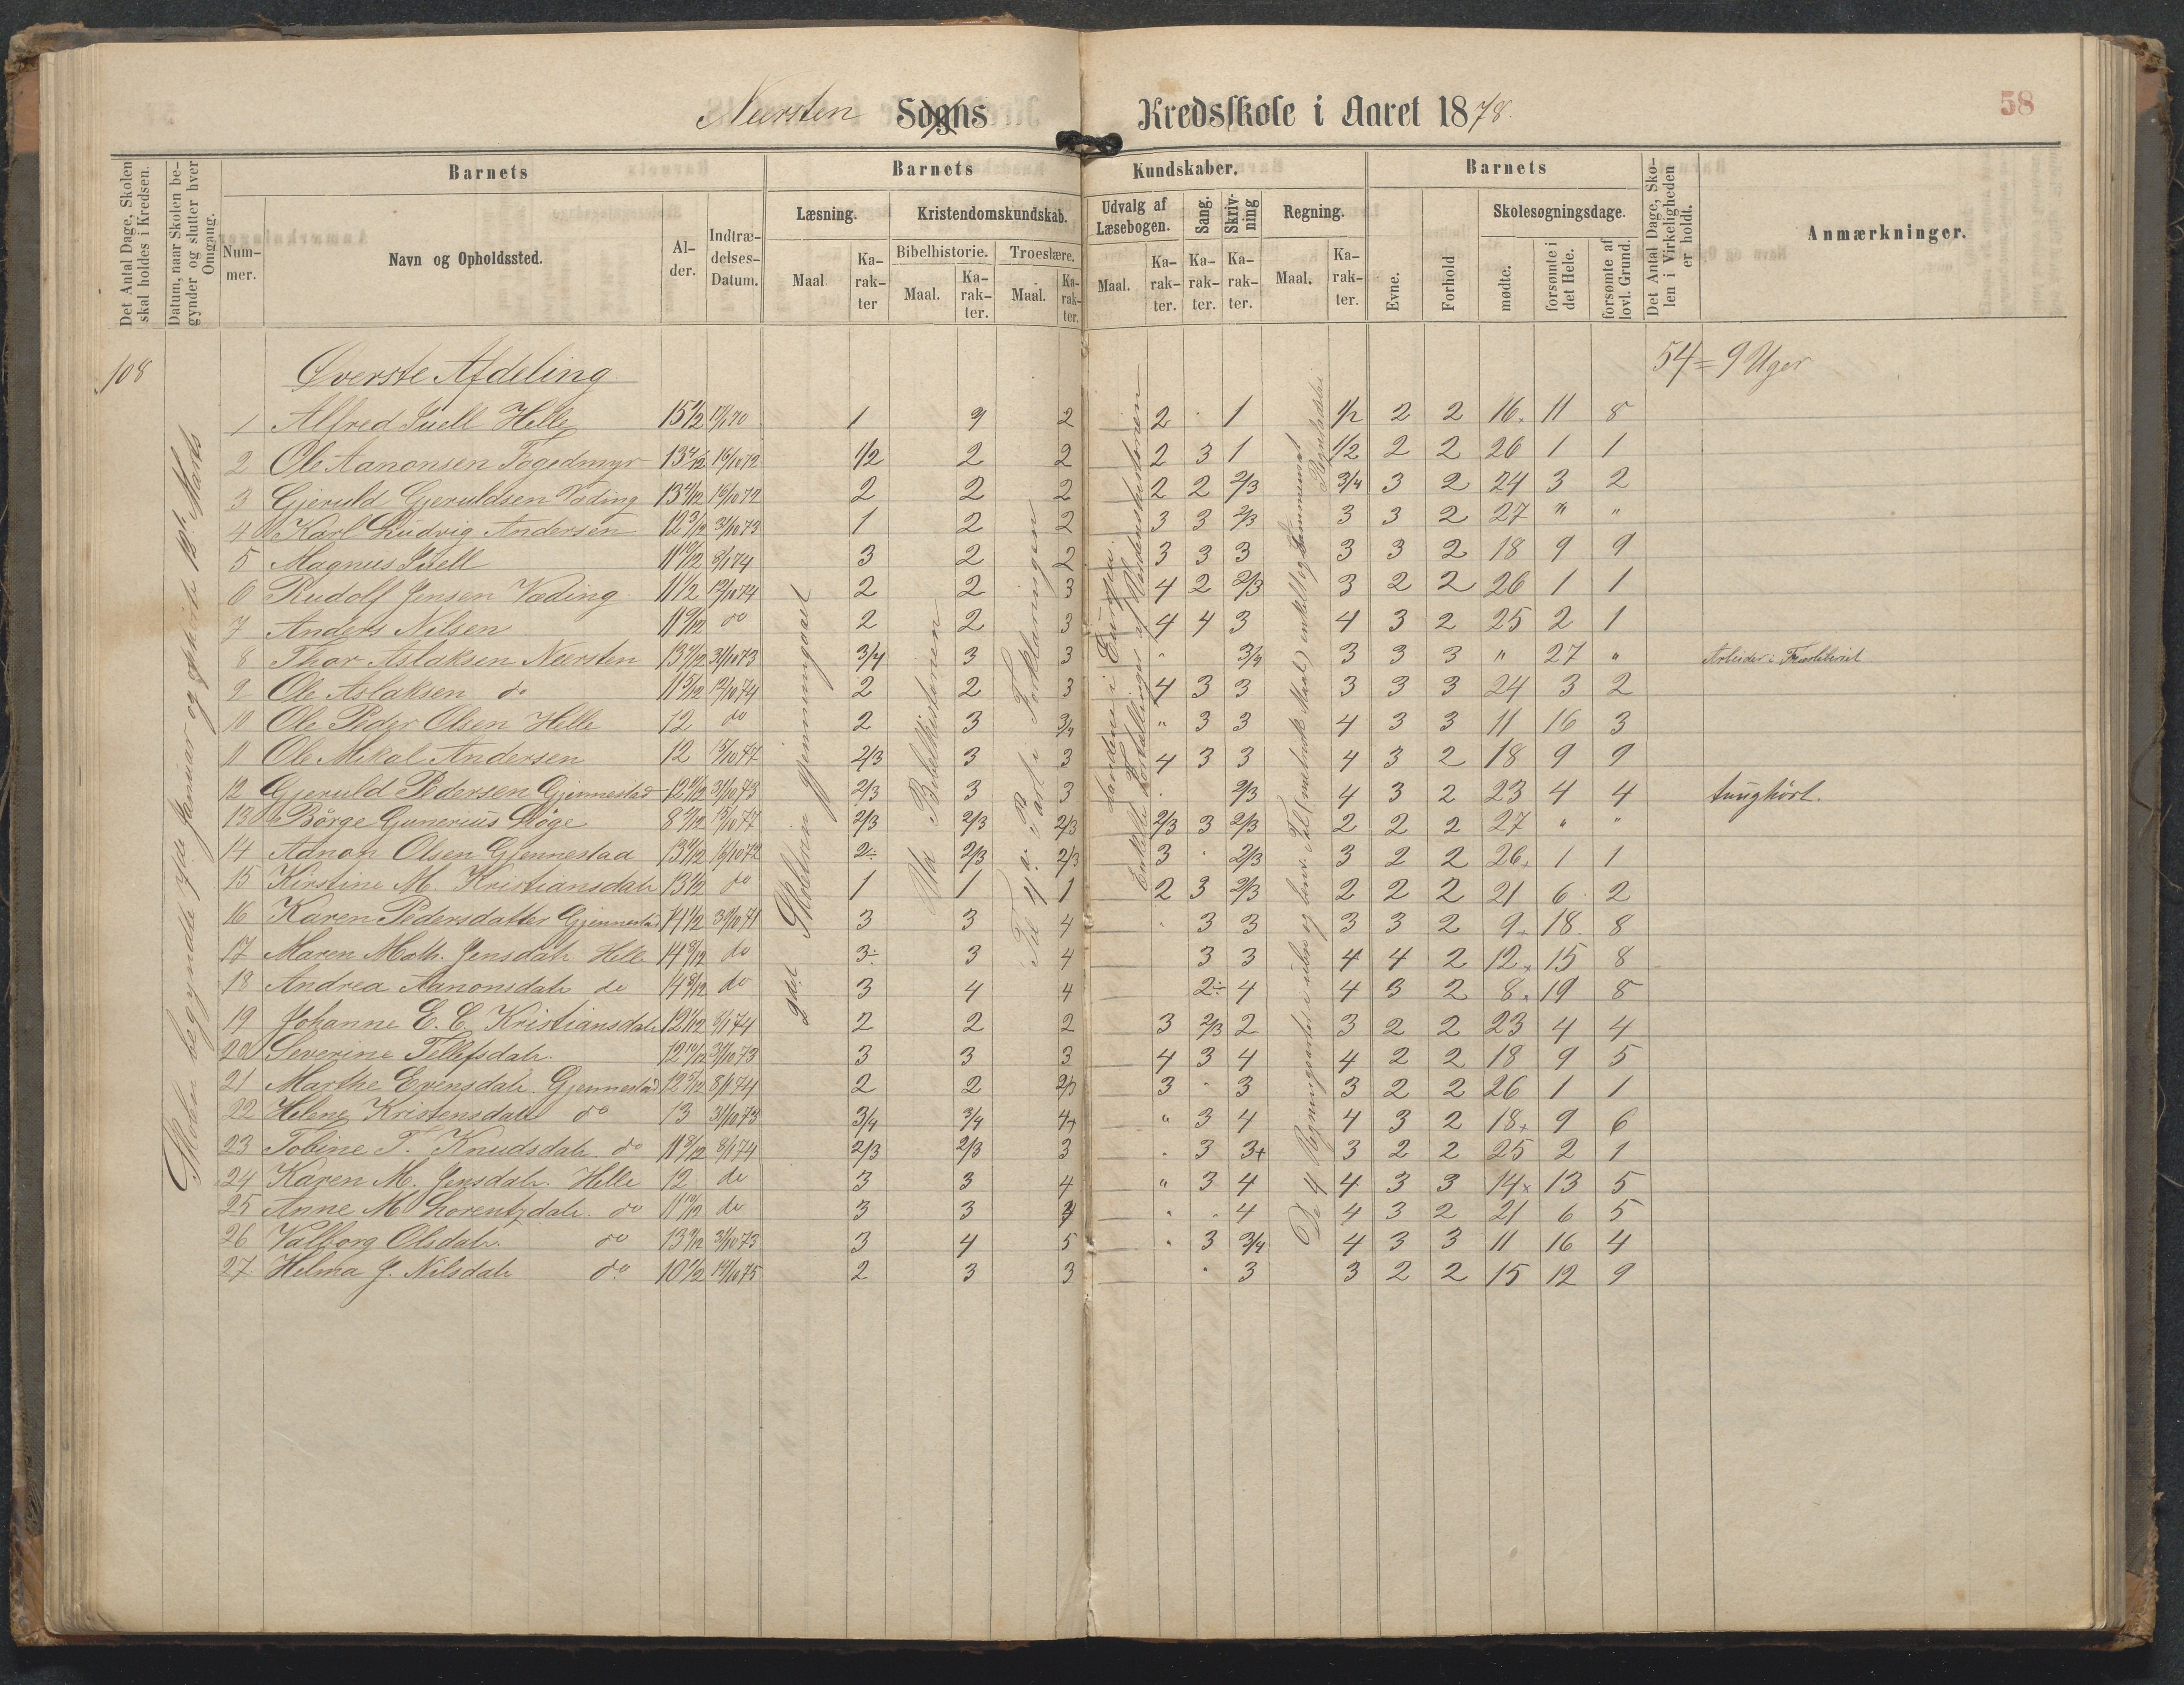 Neersten Sogns Kredsskole i Aaret 1878.
58
Det Antal Dage, Skolen skal holdes i Kredsen.
Datum, naar Skolen begynder og slutter hver Omgang.
Barnets
Nummer.
Navn og Opholdssted.
Alder.
Indtrædelses-Datum.
Barnets Kundskaber.
Læsning.
Maal
Karakter
Kristendomskundskab.
Bibelhistorie.
Maal.
Karakter.
Troeslære.
Maal.
Karakter.
Udvalg af Læsebogen.
Maal.
Karakter.
Sang.
Karakter.
Skrivning
Karakter.
Regning.
Maal.
Karakter.
Barnets
Evne.
Forhold
Skolesøgningsdage.
mødte.
forsømte i det Hele.
forsømte af lovl. Grund.
Det Antal Dage, Skolen i Virkeligheden er holdt.
Anmærkninger.
108 Øverste Afdeling 54 = 9 Uger
Skolen begyndte Januar og Marts
Skolebtnin gjennemgaaet
Bibelhistorien
Til 4de Part i Forklaringen
Landene i Europa.
Enkelte Fortællinger af Verdenshistorien
De 4 Regningsarter
1 Alfred Snell Helle 1 2 2 · 1 1/2 2 2 16. 11 8
2 Ole Aanonsen Fogedmyr 16/10 72 1/2 2 2 2 3 1 1/2 2 2 26 1 1
3 Gjeruld Gjeruldsen Vading 16/10 72 2 2 2 2 2 2/3 3/4 3 2 24 3 2
4 Karl Ludvig Andersen 12 3/12 31/10 73 1 2 2 3 3 2/3 3 3 2 27 " "
5 Magnus Snell 11 10/12 8/1 74 3 2 2 3 3 3 3 3 2 18 9 9
6 Rudolf Jensen Vading 2 2 3 4 2 2/3 3 2 2 26 1 1
7 Anders Nilsen do 2 2 3 4 4 3 4 3 2 25 2 1
8 Thor Aslaksen Neersten 31/10 73 3/4 3 3 " 3/4 3 3 3 " 27 " Arbeider i
9 Ole Aslaksen do 2 2 3 4 3 3 3 3 3 24 3 2
10 Ole Peder Olsen Helle 12 do 2 3 3/4 " 3 3 4 3 3 11 16 3
11 Ole Mikal Andersen 12 2/3 3 3 4 3 3 4 3 2 18 9 9
12 Gjeruld Pedersen Gjennestad 31/10 73 2/3 3 3 · 2/3 4 3 2 23 4 4 tunghört.
13 Börge Gunerius Löge 2/3 2/3 2/3 2/3 3 2/3 2 2 2 27 " "
14 Aanon Olsen Gjennestad 16/10 72 2÷ 2/3 2/3 3 · 2/3 3 2 2 26+ 1 1
15 Kirstine M. Kristiansdatr do 1 1 1 2 3 2/3 2 2 2 21 6 2
16 Karen Pedersdatter Gjennestad 3 3 4 · 3 3 3 3 2 9+ 18 8
17 Maren Math. Jensdatr Helle do 3÷ 3 4 3 3 4 4 2 12+ 15 8
18 Andrea Aanonsdatr do do 3 4 4 2÷ 4 4 3 2 8+ 19 8
19 Johanne E. C. Kristiansdatr 8/1 74 2 2 2 3 2/3 2 3 2 2 23 4 4
20 Severine Tellefsdatr. 31/10 73 3 3 3 4 3 4 4 2 2 18 9 5
21 Marthe Evensdatr. Gjennestad 8/1 74 2 2 2/3 3 · 3 3 2 2 26 1 1
22 Helene Kristensdatr do 13 31/10 73 3/4 3/4 4+ " 3 4 4 3 2 18+ 9 6
23 Tobine T. Knudsdatr. do 8/1 74 2/3 2/3 3 · 3 3+ 3 2 2 25 2 1
24 Karen M. Jensdatr. Helle 12 do 3 3 4 " 3 4 4 3 3 14+ 13 5
25 Anne M Lorentzdatr. do do 3 3 4 · · 4 4 3 2 21 6 5
26 Valborg Olsdatr. do 31/10 73 3 4 5 · 3 3/4 4 3 3 11 16 4
27 Helma J. Nilsdatr do 2 3 3 · 3 3 2 2 15 12 9